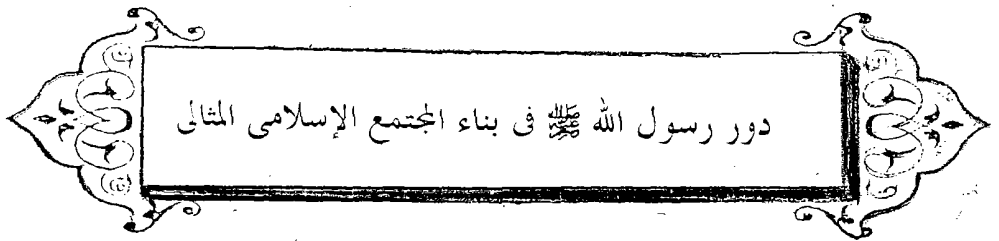 دور رسول الله ﷺ فى بناء المجتمع الإسلامى المثالى